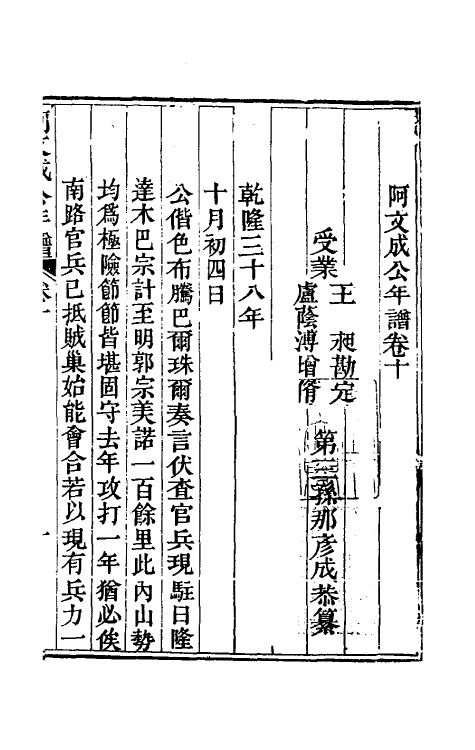 阿文成公年譜卷十
受業
王 昶勘定
盧蔭溥增脩
第三孫那彥成恭纂
乾隆三十八年
十月初四日
公偕色布騰巴爾珠爾奏言伏査官兵現駐日隆
達木巴宗計至明郭宗美諾一百餘里此內山勢
均爲極險節節皆堪固守去年攻打一年猶必俟
南路官兵已抵賊巢始能會合若以現有兵力一
阿文成公年譜 卷十
一